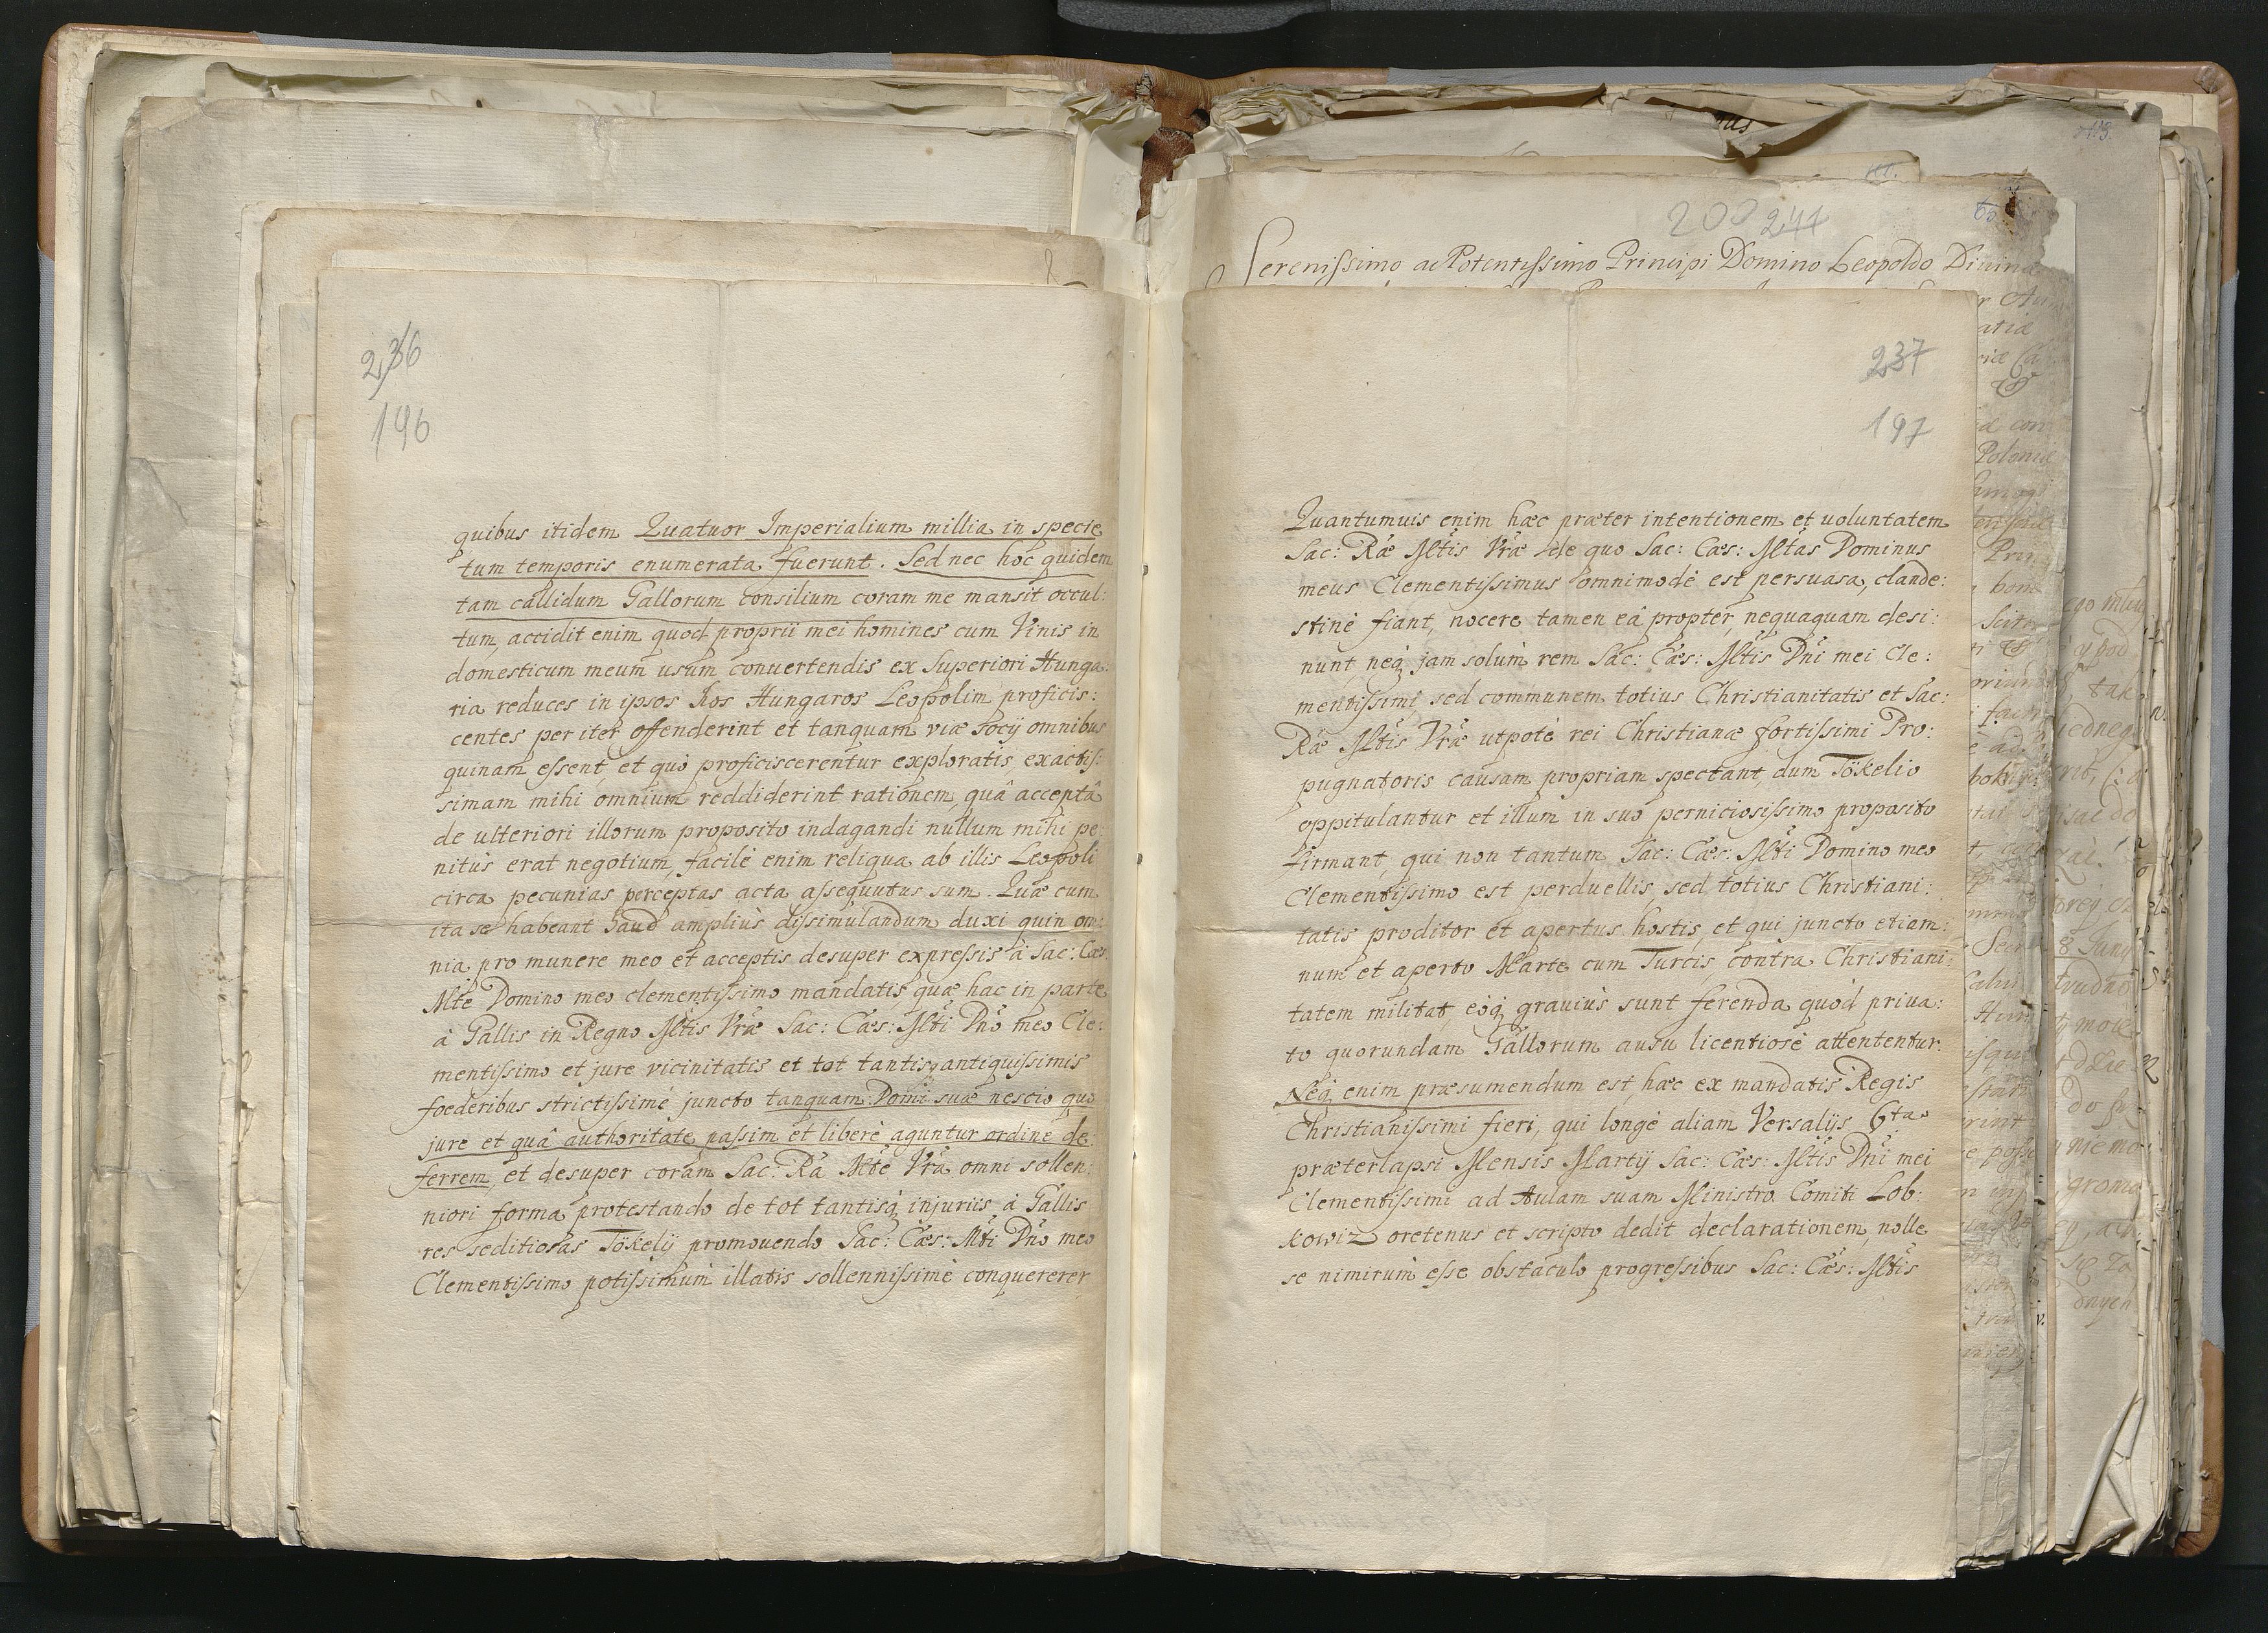 236
196
quibus itidem Quatuor Imperialium millia in specie
tum temporis enumerata fuerunt. Sed nec hoc quidem
tam callidum Gallorum consilium coram me mansit occul:
tum, accidit enim quod proprii mei homines cum Vinis in
domesticum meum usum convertendis ex Superiori Hunga:
ria reduces in ipsos hos Hungaros Leopolim proficis:
centes per iter offenderint et tanquam viæ Socij omnibus
quinam essent et quò proficiscerentur exploratis, exactis:
simam mihi omnium reddiderint rationem, quâ acceptâ
de ulteriori illorum proposito indagandi nullum mihi pe:
nitùs erat negotium, facilè enim reliqua ab illis Leopoli
circa pecunias perceptas acta assequutus sum. Quæ cum
ita se habeant haud ampliùs dissimulandum duxi quin om:
nia pro munere meo et acceptis desuper expressis à Sac: Cæs:
Mte Domino meo clementissimo mandatis quæ hac in parte
à Gallis in Regno Mtis Vræ Sac: Cæs: Mti Dno meo Cle:
mentissimo et jure vicinitatis et tot tantisq antiquissimis
foederibus strictissimè juncto tanquam Domi suæ nescio quo
jure et quâ authoritate passim et liberè aguntur ordine de:
ferrem, et desuper coram Sac: Ra Mte Vra omni sollen:
niori forma protestando de tot tantisq injuriis à Gallis
res seditiosas Tökelij promovendo Sac: Cæs: Mti Dno meo
Clementissimo potissimùm illatis sollennissimè conquererer
200 244
Serenissimo ac Potentissimo Principi Domino Leopoldo Divina
237
197
Quantumvis enim hæc præter intentionem et voluntatem
Sac: Ræ Mtis Vræ de quo Sac: Cæs: Mtas Dominus
meus Clementissimus omnimodè est persuasa, clande:
stinè fiant, nocere tamen eâ propter nequaquam desi:
nunt, neq jam solùm rem Sac: Cæs: Mtis Dni mei Cle:
mentissimi sed communem totius Christianitatis et Sac:
Ræ Mtis Vræ utpotè rei Christianæ fortissimi Pro:
pugnatoris causam propriam spectant, dum Tökelio
oppitulantur et illum in suo perniciosissimo proposito
firmant, qui non tantum Sac: Cæs: Mti Domino meo
Clementissimo est perduellis, sed totius Christiani:
tatis proditor et apertus hostis, et qui juncto etiam:
num et aperto Marte cum Turcis contra Christiani:
tatem militat, eòq graviùs sunt ferenda quòd priva:
to quorundam Gallorum ausu licentiosè attententur.
Neq enim præsumendum est, hæc ex mandatis Regis
Christianissimi fieri, qui longè aliam Versalijs 6ta
præterlapsi Mensis Martij Sac: Cæs: Mtis Dni mei
Clementissimi ad Aulam suam Ministro Comiti Lob:
kowiz oretenus et scripto dedit declarationem, nolle
se nimirùm esse obstaculo progressibus Sac: Cæs: Mtis